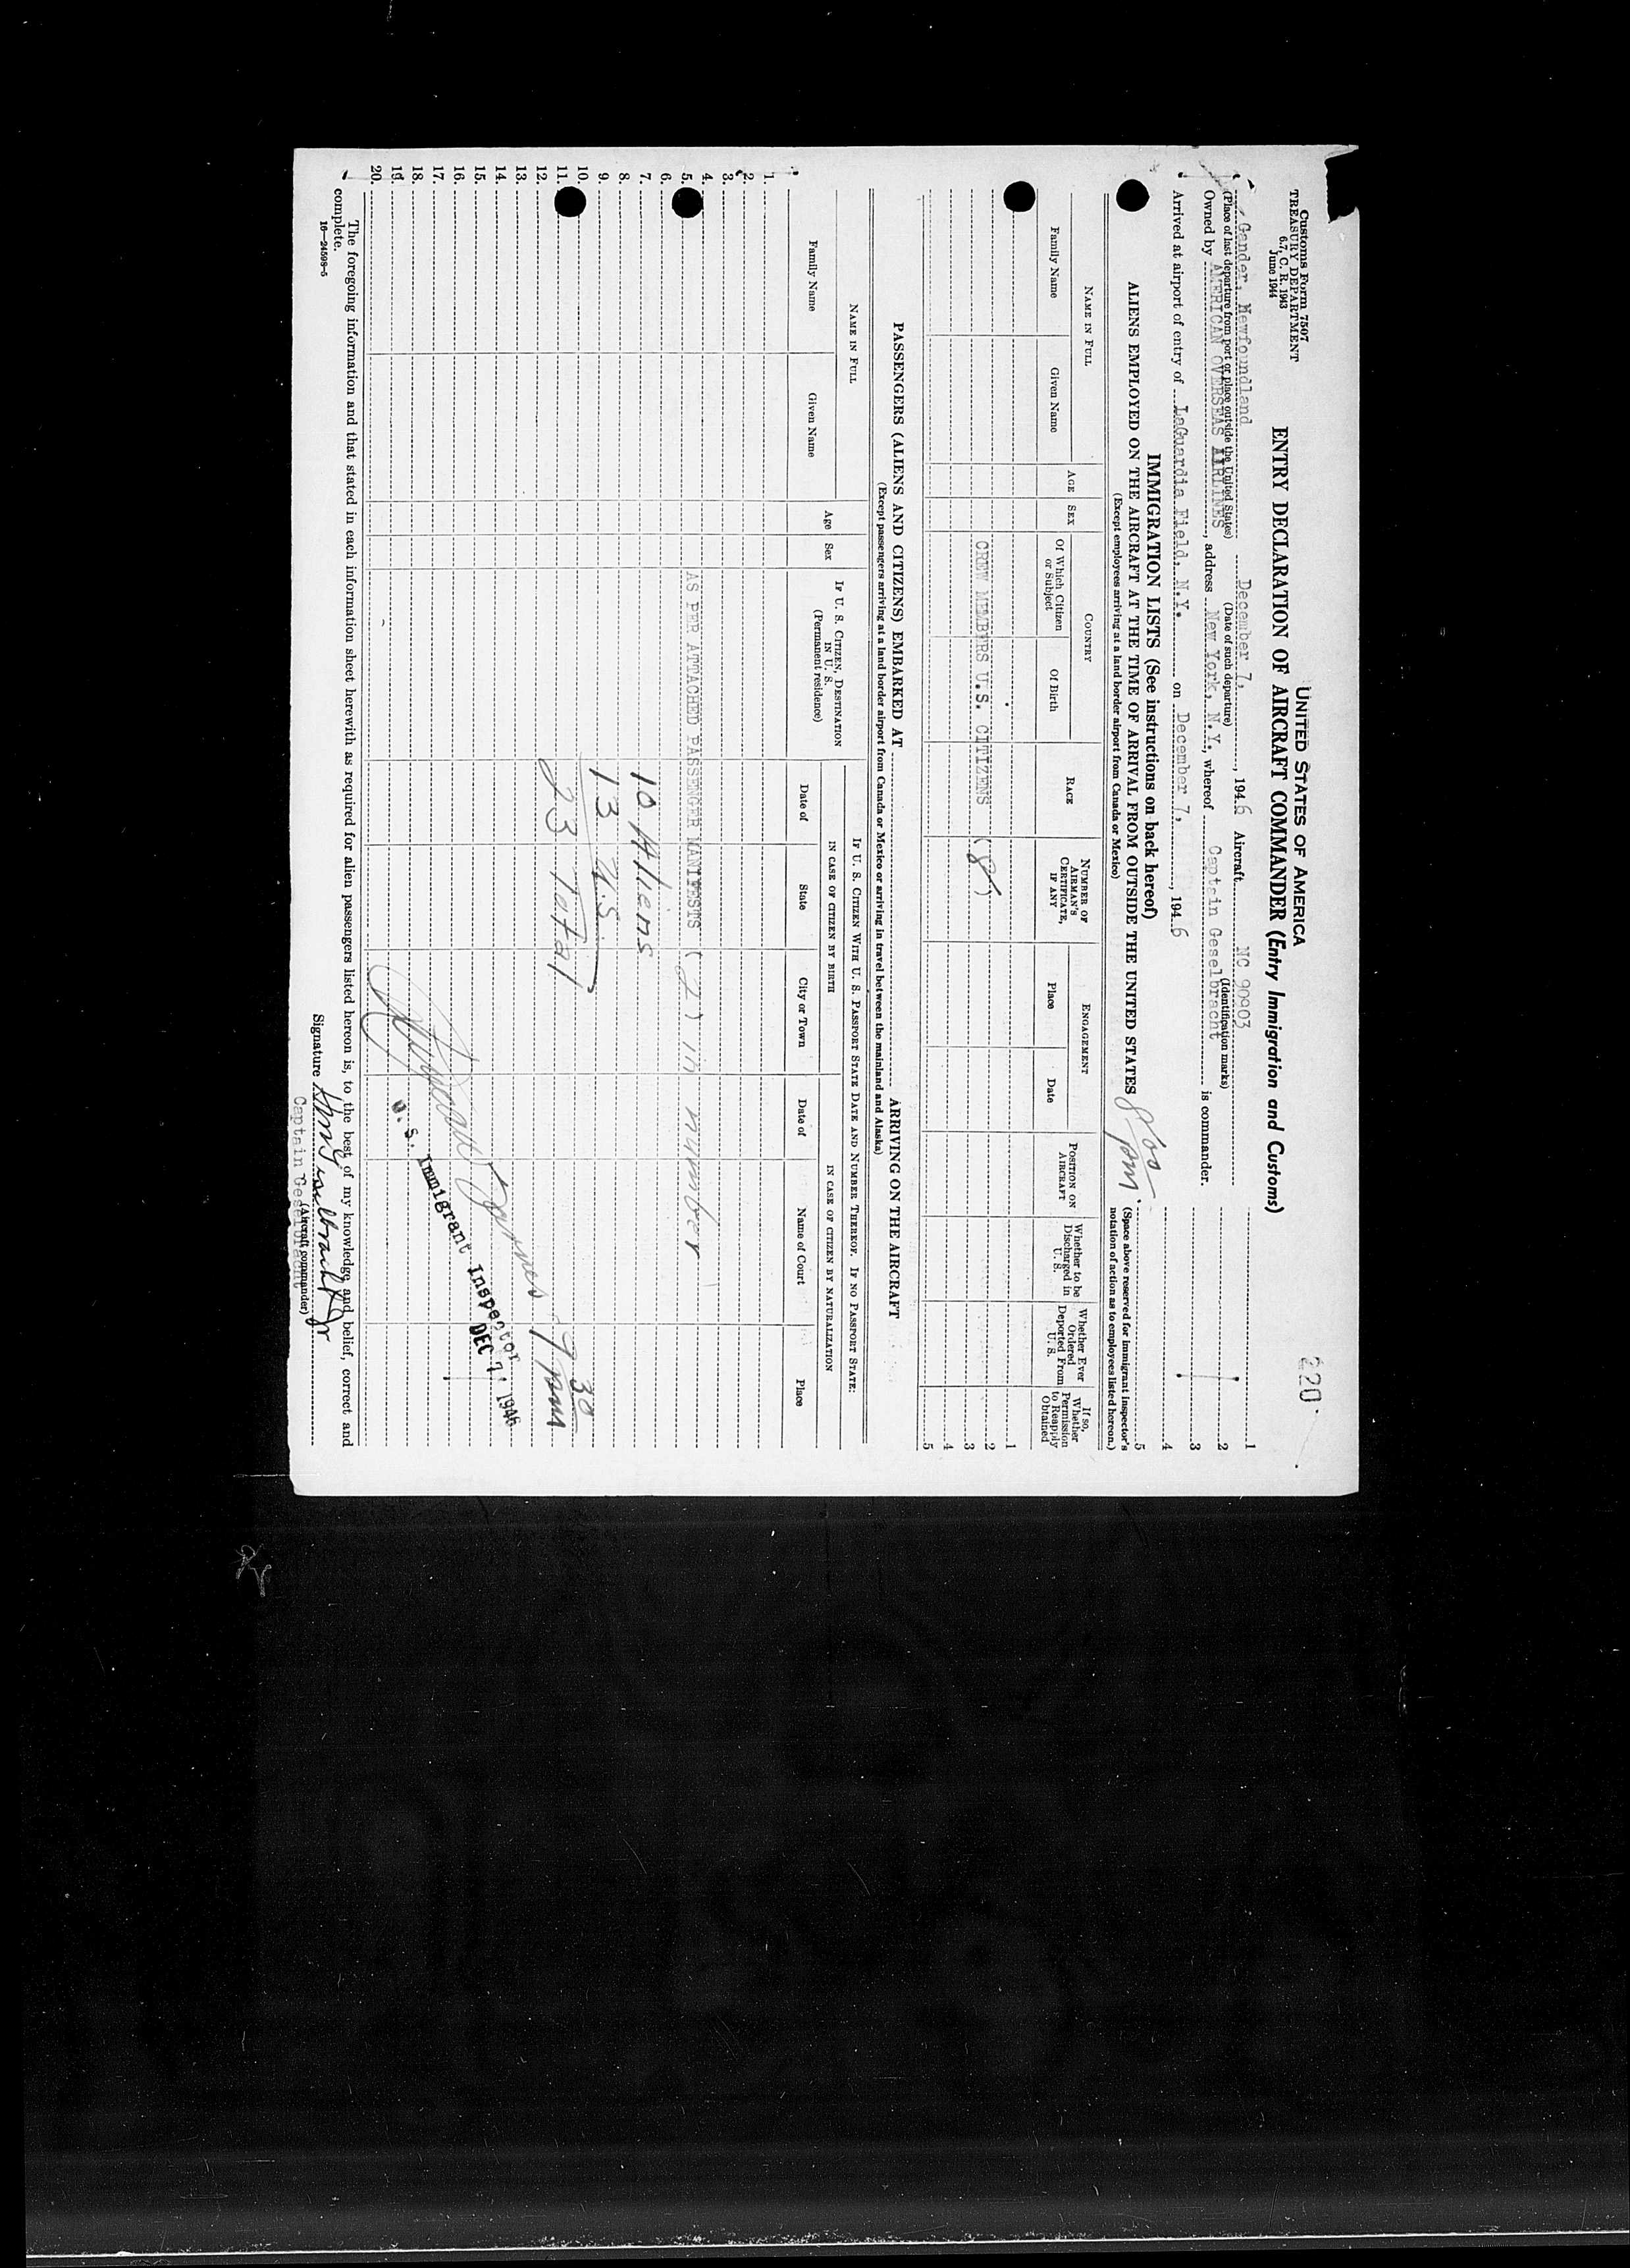 220
Customs Form 7507
TREASURY DEPARTMENT
6.7, C. R. 1943
June 1944
UNITED STATES OF AMERICA
ENTRY DECLARATION OF AIRCRAFT COMMANDER (Entry Immigration and Customs)
Gander, Newfoundland December 7, 1946 Aircraft NC 90903 1
(Place of last departure from port or place outside the United States) (Date of such departure) (Identification marks)
Owned by AMERICAN OVERSEAS AIRLINES, address New York, N.Y., whereof Captain Geselbracht is commander. 2
3
Arrived at airport of entry of LaGuardia Field, N.Y. on December 7, 1946 4
IMMIGRATION LISTS (See instructions on back hereof)
ALIENS EMPLOYED ON THE AIRCRAFT AT THE TIME OF ARRIVAL FROM OUTSIDE THE UNITED STATES 5
(Except employees arriving at a land border airport from Canada or Mexico)
(Space above reserved for immigrant inspector's notation of action as to employees listed hereon.)
NAME IN FULL AGE SEX COUNTRY RACE NUMBER OF AIRMAN'S CERTIFICATE, IF ANY ENGAGEMENT POSITION ON AIRCRAFT Whether to be Discharged in U. S. Whether Ever Ordered Deported From U. S. If so, Whether Permission to Reapply Obtained
Family Name Given Name Of Which Citizen or Subject Of Birth Place Date
1
2
CREW MEMBERS U.S. CITIZENS (8) 3
4
5
PASSENGERS (ALIENS AND CITIZENS) EMBARKED AT ARRIVING ON THE AIRCRAFT
(Except passengers arriving at a land border airport from Canada or Mexico or arriving in travel between the mainland and Alaska)
NAME IN FULL Age Sex IF U. S. CITIZEN, DESTINATION IN U. S. (Permanent residence) IF U. S. CITIZEN WITH U. S. PASSPORT STATE DATE AND NUMBER THEREOF. IF NO PASSPORT STATE:
IN CASE OF CITIZEN BY BIRTH IN CASE OF CITIZEN BY NATURALIZATION
Family Name Given Name Date of State City or Town Date of Name of Court Place
1.
2.
3.
4.
5. AS PER ATTACHED PASSENGER MANIFESTS (2) in number
6.
7. 10 Aliens
8.
9. 13 U.S.
10.
11. 23 Total 7 30 PM
12.
13.
14.
15.
16.
17.
18.
19.
20.
U. S. Immigrant Inspector
DEC 7 1946
The foregoing information and that stated in each information sheet herewith as required for alien passengers listed hereon is, to the best of my knowledge and belief, correct and
complete.
Signature
(Aircraft commander)
16—24598-5
Captain Geselbracht